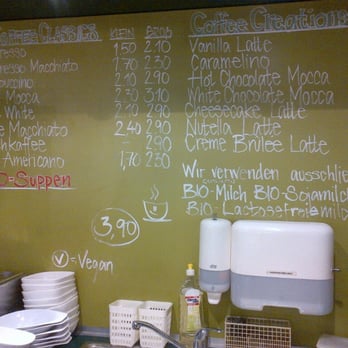 Coffee Classics KLEIN GROß
Espresso 1,50 2.10
Espresso Macchiato 1,70 2.30
Cappuccino 2.10 2.90
Mocca 2.30 3.10
White 2.10 2.90
Macchiato 2.40 2.90
Milchkaffee - 2.90
Americano 1,70 2.30
BIO-Suppen
3,90
V = Vegan
Coffee Creations
Vanilla Latte
Caramelino
Hot Chocolate Mocca
White Chocolate Mocca
Cheesecake Latte
Nutella Latte
Creme Brulee Latte
Wir verwenden
BIO-Milch, BIO-Sojamilch
BIO-Lactosefreie